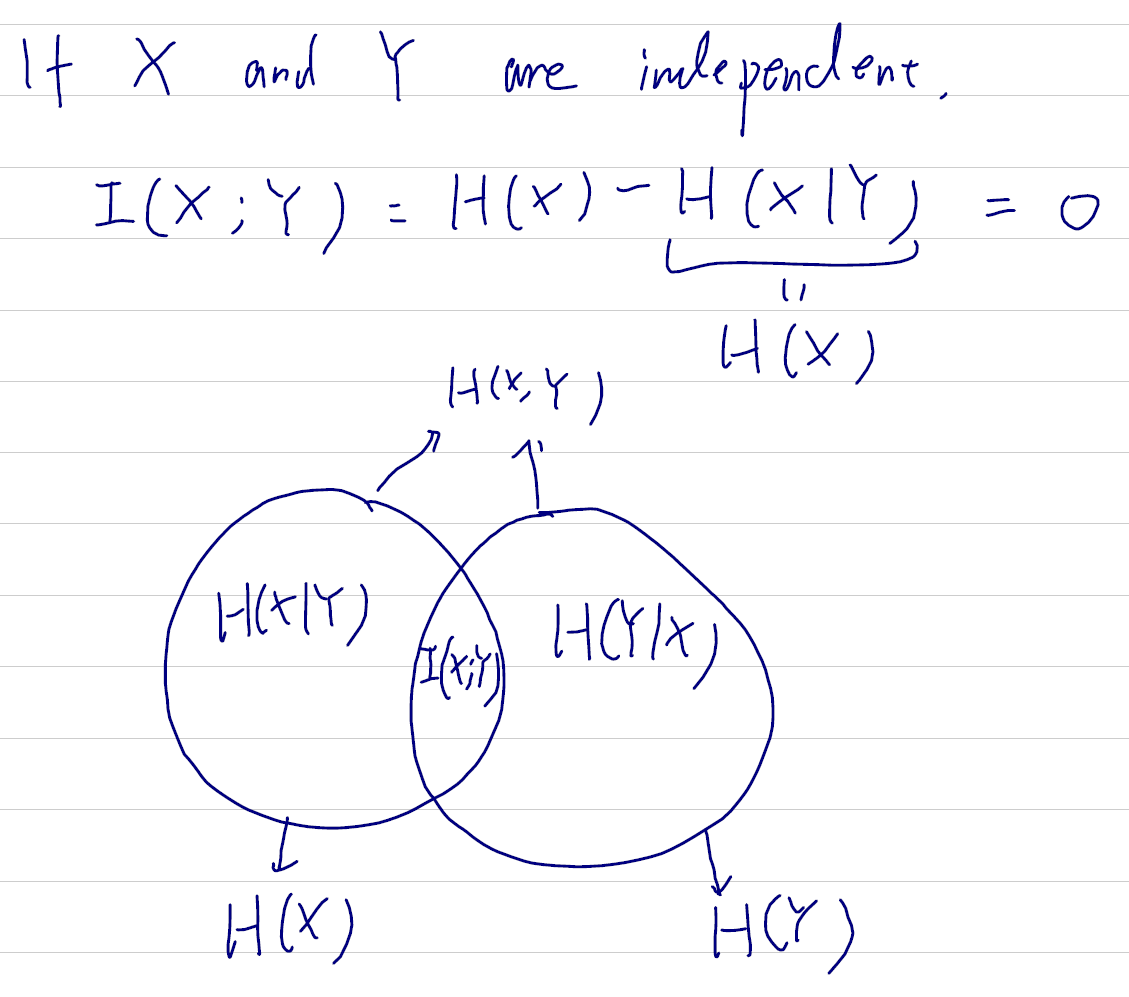 If X and Y are independent,
I(X;Y) = H(X) - H(X|Y) = 0
"
H(X)
H(X,Y)
H(X|Y)
I(X;Y)
H(Y|X)
H(X)
H(Y)